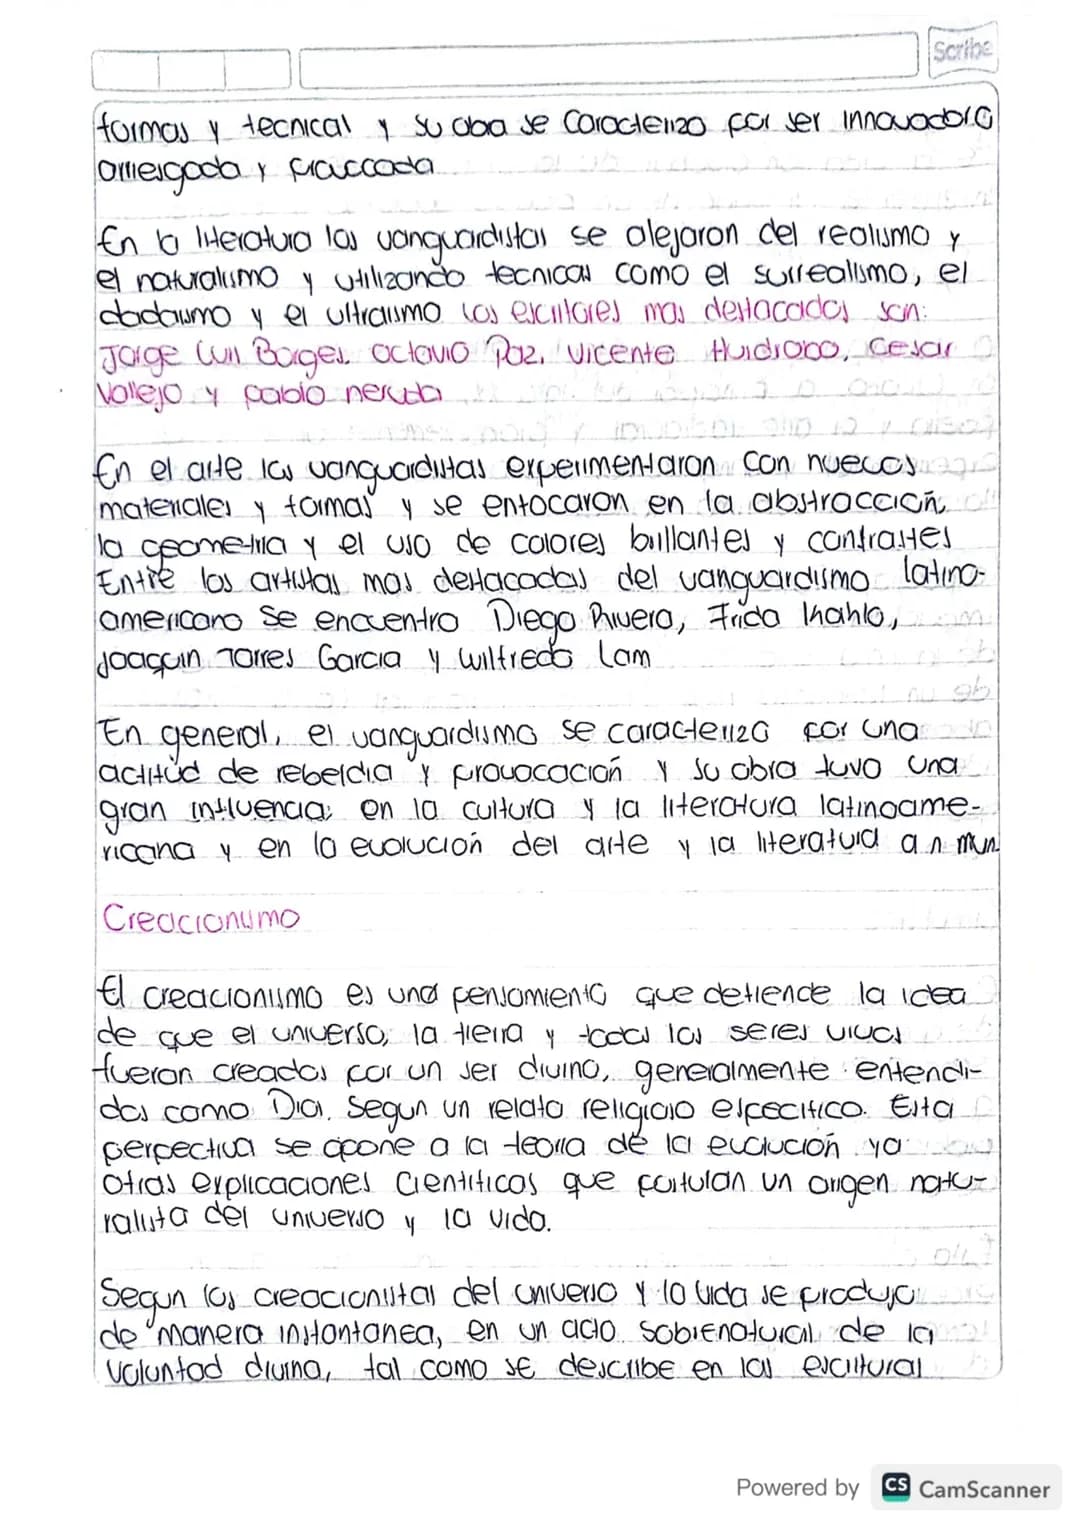 Scribe
formas y tecnicas y su obra se Caracterizo por ser innovadora
arriesgada y
En la literatura las vanguardistas se alejaron del realismo y
el naturalismo y utilizando tecnicas como el surrealismo, el
dadaismo y el ultraismo los escritores mas destacados son:
Jorge Luis Borges. Octavio Paz, Vicente Huidrobo, Cesar
Vallejo y pablo neruda
En el arte los vanguardistas experimentaron con nuevos
materiales y formas y se enfocaron en la abstracción,
la geometria y el uso de colores brillantes y contrastes
Entre los artistas mas destacados del vanguardismo latino-
americano se encuentro Diego Rivera, Frida Khahlo,
Joaquin Torres Garcia y Wilfredo Lam
En general, el vanguardismo se caracterizo por una
actitud de rebeldia y provocación y su obra tuvo una
gran influencia en la cultura y la literatura latinoame-
ricana y en la evolución del arte y la literatura a n mun
Creacionismo
El creacionismo es una pensamiento que defiende la idea
de que el universo, la tierra y todos los seres vivos
fueron creados por un ser divino, generalmente entendi-
dos como Dios. Segun un relato religioso especifico. Esta
perpectiva se opone a la teoria de la evolución ya
otras explicaciones cientificas que postulan un origen natu-
ralista del universo y la vida.
Segun los creacionistas del universo y la vida se produjo
de manera instantanea, en un acto sobrenatural de la
voluntad divina, tal como se describe en las escrituras
Powered by CS CamScanner